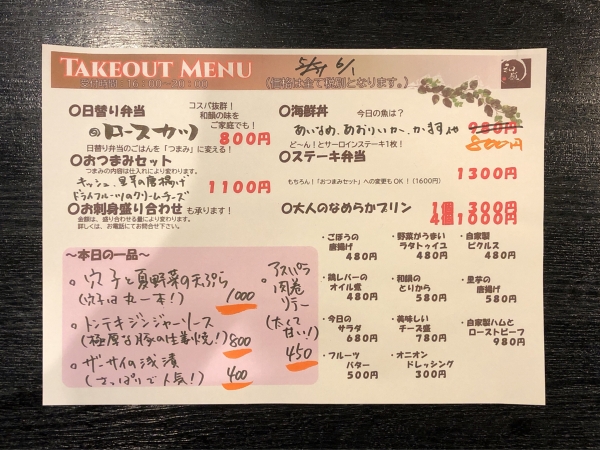 TAKEOUT MENU
受付時間:16:00〜20:00
5/31 6/1
(価格は全て税別となります。)
○日替り弁当
コスパ抜群!
和顔の味を
ご家庭でも!
ロースカツ
800円
日替り弁当のごはんを「つまみ」に変える!
○おつまみセット
つまみの内容は仕入れにより変わります。
キッシュ、里芋の唐揚げ
ドライフルーツのクリームチーズ
1100円
○お刺身盛り合わせも承ります!
金額は、盛り合わせる量により変わります。
詳しくは、お電話にてお問合せ下さい。
○海鮮丼
今日の魚は?
あいなめ、あおりいか、かます
980円
800円
ど〜ん!とサーロインステーキ1枚!
○ステーキ弁当
1300円
もちろん!「おつまみセット」への変更もOK!(1600円)
○大人のなめらかプリン
1個 300円
4個 1000円
〜本日の一品〜
・穴子と夏野菜の天ぷら
(穴子は丸一本!)
1000
・トンテキジンジャーソース
(極厚な豚の生姜焼!)
800
・ザーサイの浅漬
(さっぱりで人気!)
400
・アスパラ
肉巻
ソテー
(太くて
甘い!)
450
・ごぼうの
唐揚げ
480円
・野菜がうまい
ラタトゥイユ
480円
・自家製
ピクルス
480円
・鶏レバーの
オイル煮
480円
・和顔の
とりから
580円
・里芋の
唐揚げ
580円
・今日の
サラダ
680円
・美味しい
チーズ盛
780円
・自家製ハムと
ローストビーフ
980円
・フルーツ
バター
500円
・オニオン
ドレッシング
300円